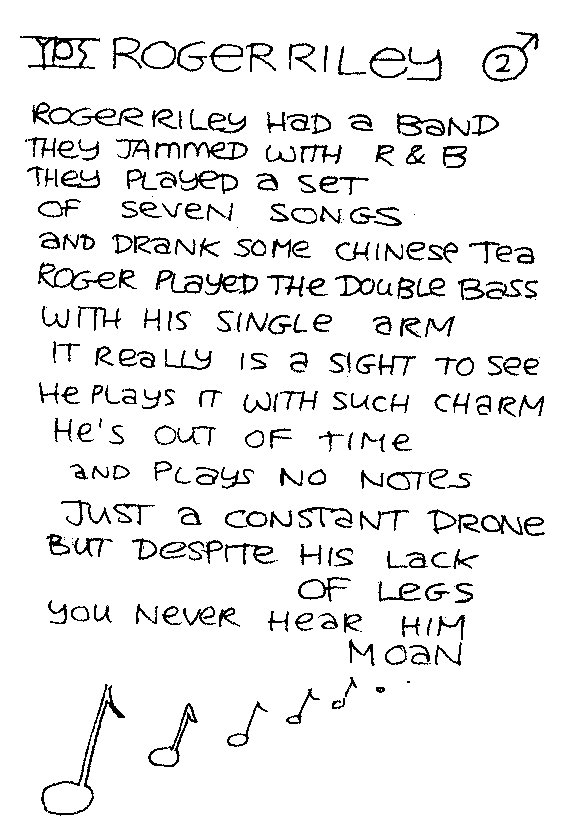 YPS ROGER RILEY 2
ROGER RILEY HAD A BAND
THEY JAMMED WITH R & B
THEY PLAYED A SET
OF SEVEN SONGS
AND DRANK SOME CHINESE TEA
ROGER PLAYED THE DOUBLE BASS
WITH HIS SINGLE ARM
IT REALLY IS A SIGHT TO SEE
HE PLAYS IT WITH SUCH CHARM
HE'S OUT OF TIME
AND PLAYS NO NOTES
JUST A CONSTANT DRONE
BUT DESPITE HIS LACK
OF LEGS
YOU NEVER HEAR HIM
MOAN